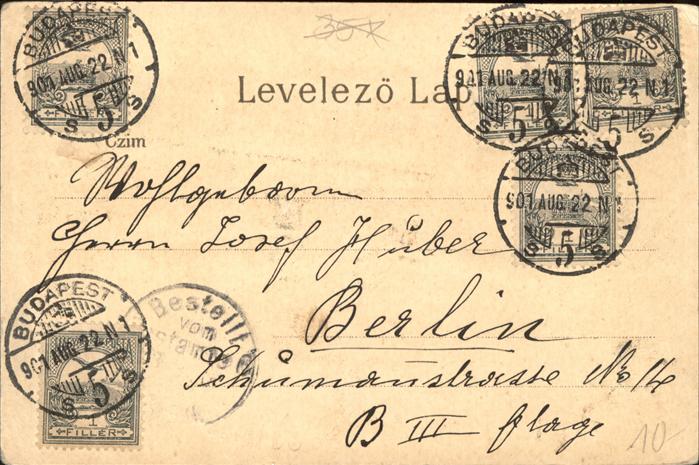 35
BUDAPEST
901 AUG. 22 N.1
S 5 S
BUDAPEST
901 AUG. 22 N.1
S 5
BUDAPEST
901 AUG. 22 N.1
5 S
Levelező Lap
Czim
BUDAPEST
901 AUG. 22 N.1
S 5 S
Wohlgeboren
Herrn Josef Huber
BUDAPEST
901 AUG. 22 N.1
S 5
1
FILLÉR
Bestellt
vom
Berlin
Schumanstrasse No 14
B III Etage
10-